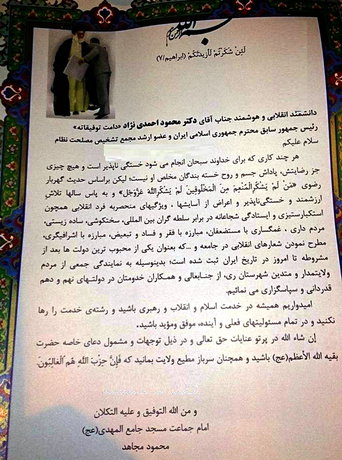 لَئِن شَكَرْتُمْ لَأَزِيدَنَّكُمْ (ابراهیم/۷)
السلام علیکم
دانشمند انقلابی و هوشمند جناب آقای دکتر محمود احمدی نژاد «دامت توفیقاته»
رئیس جمهور سابق محترم جمهوری اسلامی ایران و عضو ارشد مجمع تشخیص مصلحت نظام
هر چند کاری که برای خداوند سبحان انجام می شود خستگی ناپذیر است و هیچ چیزی
جز رضایتش، پاداش جسم و روح خسته بندگان مخلص او نیست؛ لیکن براساس حدیث گهربار
رضوی «مَنْ لَمْ يَشْكُرِ الْمُنْعِمَ مِنَ الْمَخْلُوقِينَ لَمْ يَشْكُرِ اللَّهَ عَزَّوَجَلَّ» و به پاس سالها تلاش
ارزشمند و خستگی‌ناپذیر و اعراض از آسایشها ، ویژگیهای منحصربه فرد انقلابی همچون
استکبارستیزی و ایستادگی شجاعانه در برابر سلطه گران بین المللی، سختکوشی، ساده زیستی،
مردم داری ، غمگساری با مستضعفان، مبارزه با فقر و فساد و تبعیض، مبارزه با اشرافیگری،
مطرح نمودن شعارهای انقلابی در جامعه و ...که بعنوان یکی از محبوب ترین دولت ها بعد از
مشروطه تا امروز در تاریخ ایران ثبت شده است؛ بدینوسیله به نمایندگی جمعی از مردم
ولایتمدار و متدین شهرستان ری، از جنابعالی و همکاران خدومتان در دولتهای نهم و دهم
قدردانی و سپاسگزاری می نمائیم.
امیدواریم همیشه در خدمت اسلام و انقلاب و رهبری باشید و رشته‌ی خدمت را رها
نکنید و در تمام مسئولیتهای فعلی و آینده، موفق ومؤید باشید.
إن شاء الله در پرتو عنایات حق تعالی و در ذیل توجهات و مشمول دعای خاصه حضرت
بقیه الله الأعظم(عج) باشید و همچنان سرباز مطیع ولایت بمانید که فَإِنَّ حِزْبَ اللَّهِ هُمُ الْغَالِبُونَ.
و من الله التوفیق و علیه التکلان
امام جماعت مسجد جامع المهدی(عج)
محمود مجاهد